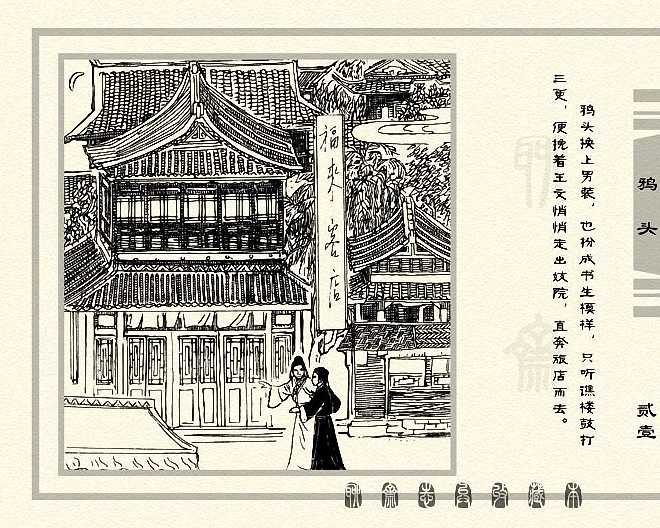 鸦头换上男装，也扮成书生模样，只听谯楼鼓打
三更，便挽着王文悄悄走出妓院，直奔旅店而去。
福来客店
鸦头
贰壹
聊斋志异收藏本